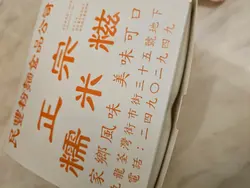 民豐粉麵食品公司
正宗
糯米糍
家鄉風味 美味可口
九龍荃灣街市街三十五號地下
電話：二四九〇二九四九